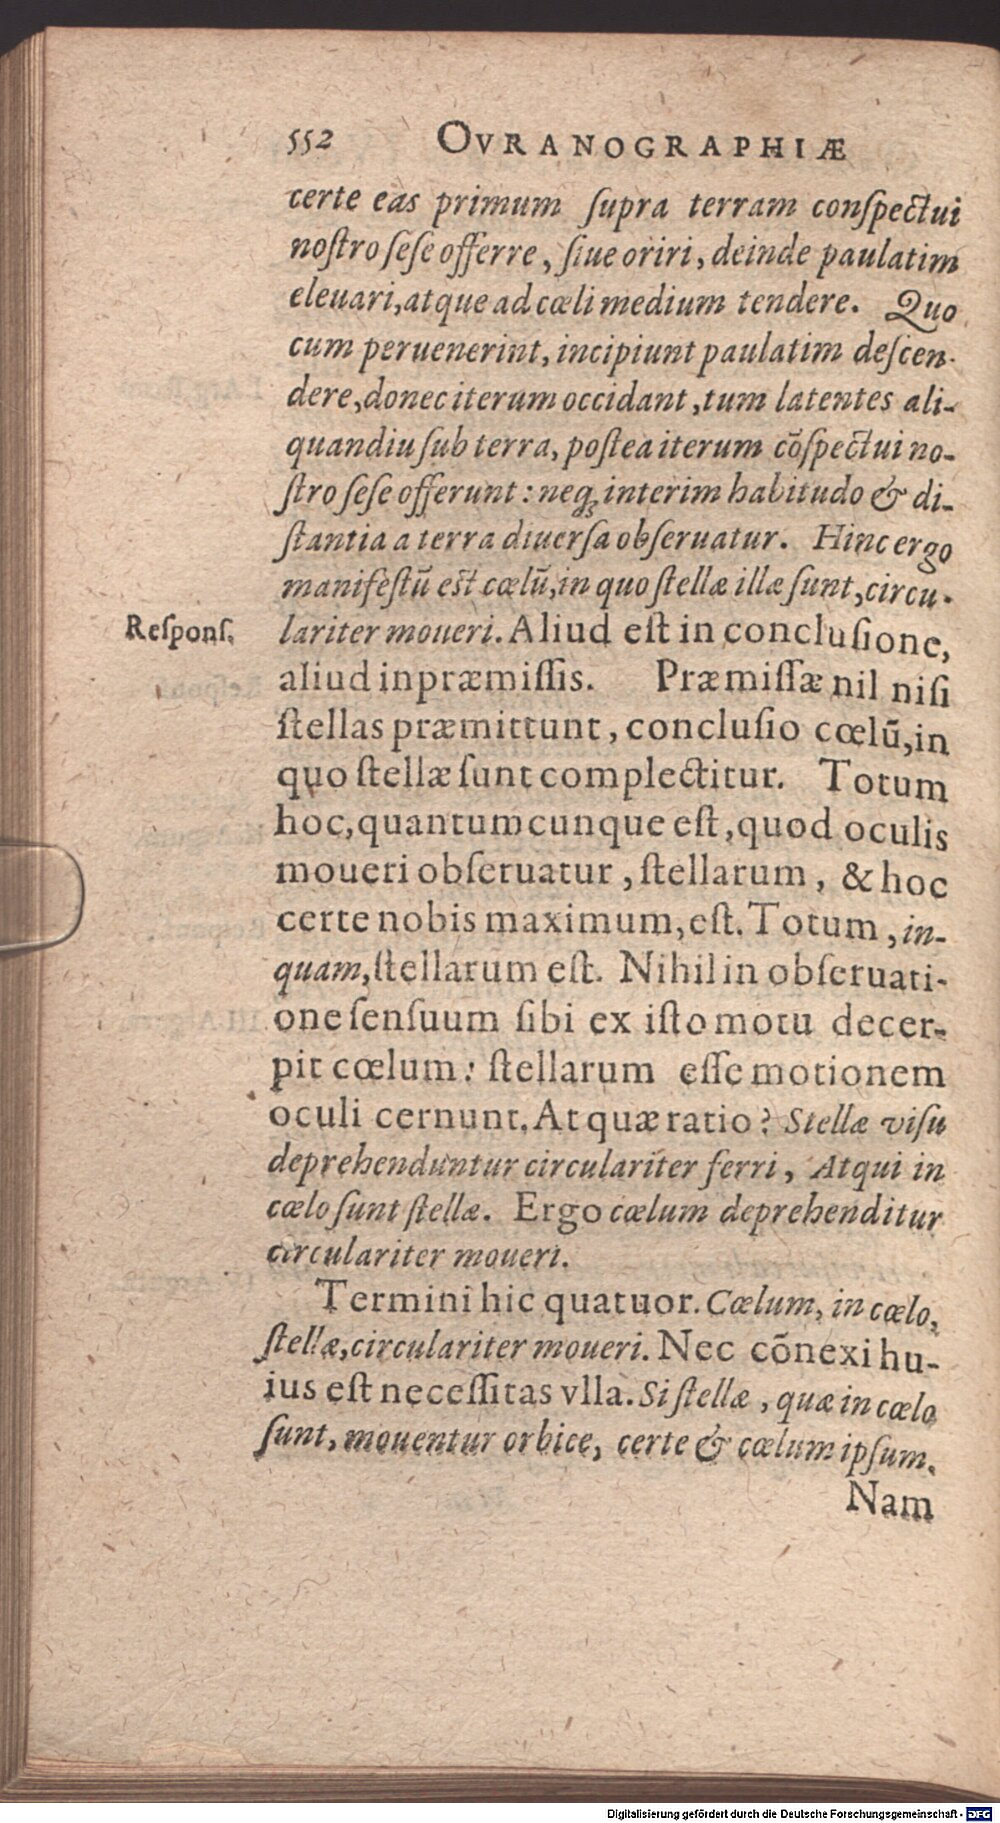 552 OVRANOGRAPHIÆ
certe eas primum ſupra terram conſpectui
noſtro ſeſe offerre, ſiue oriri, deinde paulatim
eleuari, atque ad cœli medium tendere. Quo
cum peruenerint, incipiunt paulatim deſcen-
dere, donec iterum occidant, tum latentes ali-
quandiu ſub terra, poſtea iterum cõſpectui no-
ſtro ſeſe offerunt: neq; interim habitudo & di-
ſtantia a terra diuerſa obſeruatur. Hinc ergo
manifeſtũ eſt cœlũ, in quo ſtellæ illæ ſunt, circu-
Reſponſ. lariter moueri. Aliud eſt in concluſione,
aliud in præmiſſis. Præmiſſæ nil niſi
ſtellas præmittunt, concluſio cœlũ, in
quo ſtellæ ſunt complectitur. Totum
hoc, quantumcunque eſt, quod oculis
moueri obſeruatur, ſtellarum, & hoc
certe nobis maximum, eſt. Totum, in-
quam, ſtellarum eſt. Nihil in obſeruati-
one ſenſuum ſibi ex iſto motu decer-
pit cœlum: ſtellarum eſſe motionem
oculi cernunt. At quæ ratio? Stellæ viſu
deprehenduntur circulariter ferri, Atqui in
cœlo ſunt ſtellæ. Ergo cœlum deprehenditur
circulariter moueri.
Termini hic quatuor. Cœlum, in cœlo,
ſtellæ, circulariter moueri. Nec cõnexi hu-
ius eſt neceſſitas vlla. Si ſtellæ, quæ in cœlo
ſunt, mouentur orbice, certe & cœlum ipſum.
Nam
Digitalisierung gefördert durch die Deutsche Forschungsgemeinschaft - DFG